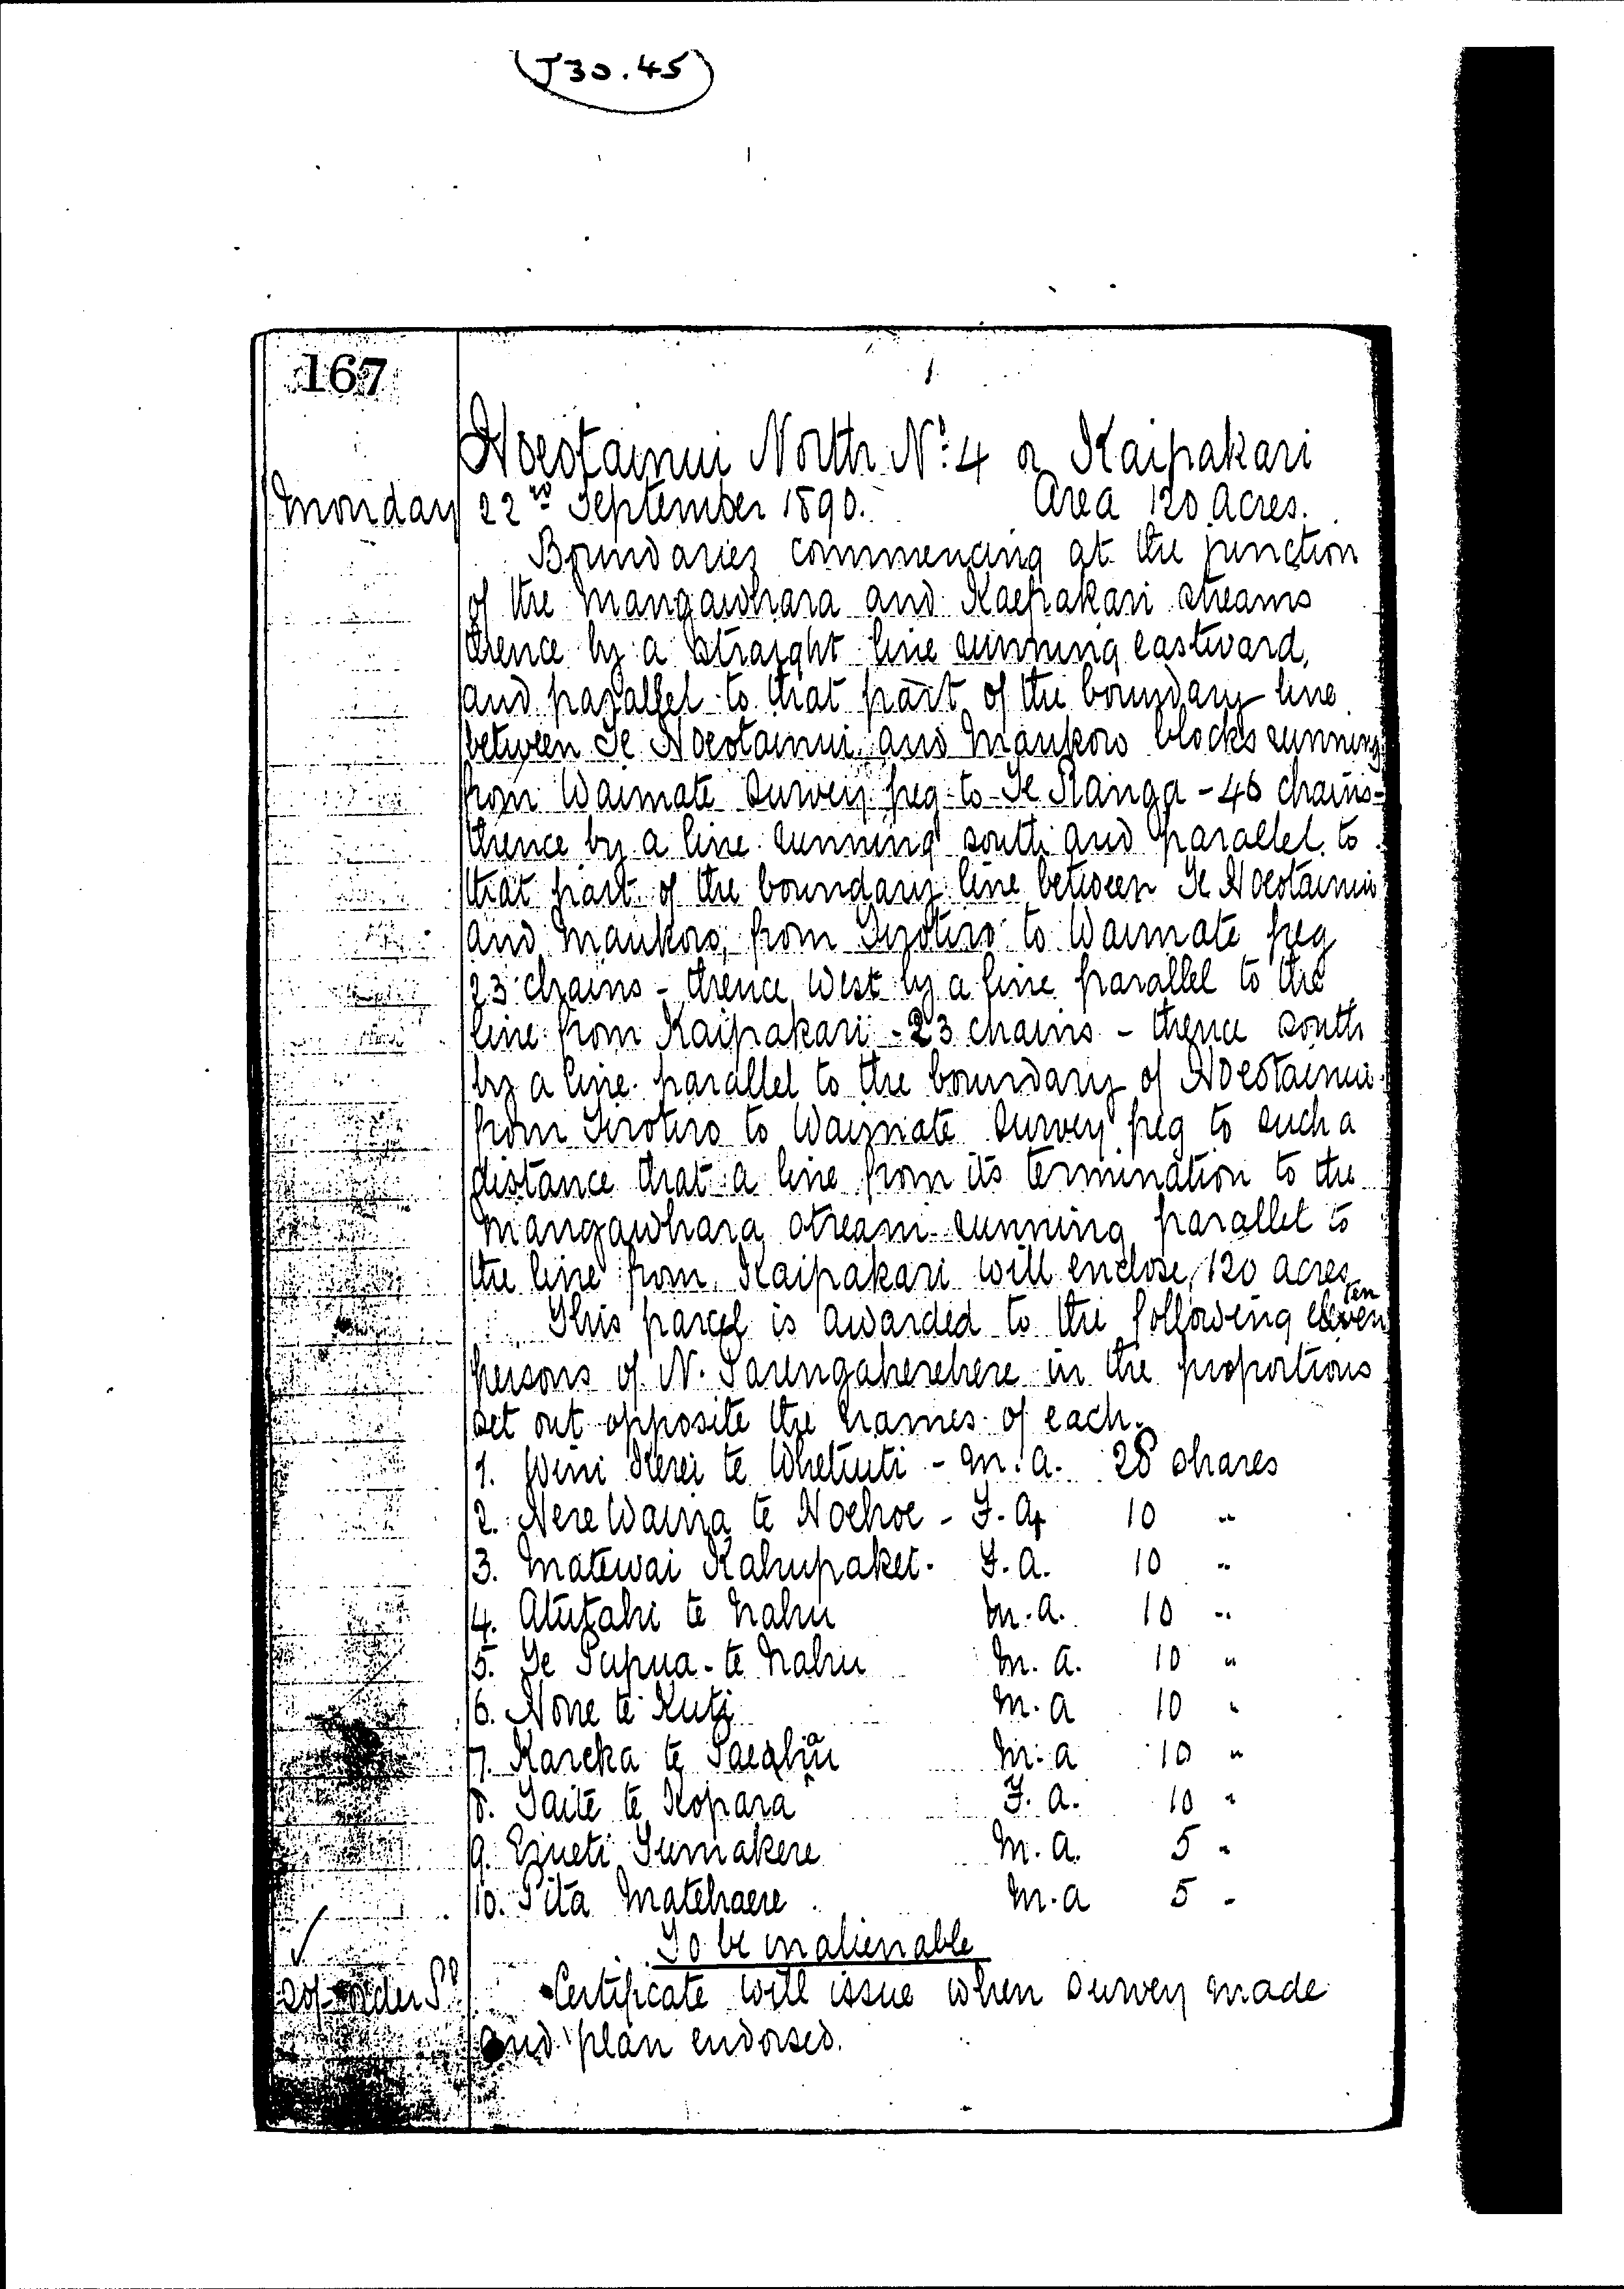 J30.45
167
Hoeotainui North No: 4 or Kaipakari
Monday 22nd September 1890. Area 120 acres.
Boundaries commencing at the junction
of the Mangawhara and Kaepakari streams
thence by a straight line running eastward,
and parallel to that part of the boundary line
between Te Hoeotainui and Maukoro blocks running
from Waimate survey peg to Te Ranga - 46 chains -
thence by a line running south and parallel to
that part of the boundary line between Te Hoeotainui
and Maukoro, from Tirotiro to Waimate peg
23 chains - thence west by a line parallel to the
line from Kaipakari - 23 chains - thence south
by a line parallel to the boundary of Hoeotainui
from Tirotiro to Waimate survey peg to such a
distance that a line from its termination to the
Mangawhara stream running parallel to
the line from Kaipakari will enclose 120 acres
This parcel is awarded to the following eleven ten
persons of N. Parengaherehere in the proportions
set out opposite the names of each.
1. Wini Kerei te Whetuiti - M.A. 28 shares
2. Here Waina te Hoehoe - F.A. 10 "
3. Matewai Kahupaket - F.A. 10 "
4. Atutahi te Nahu M.A. 10 "
5. Te Pupua te Nahu M.A. 10 "
6. Hone te Kuti M.A 10 "
7. Kareka te M.A 10 "
8. Taite te Kopara F.A. 10 "
9. Erueti Tumakere M.A. 5 "
10. Pita Matehaere M.A 5 "
To be inalienable
20/- order Pd Certificate will issue when survey made
and plan endorsed.